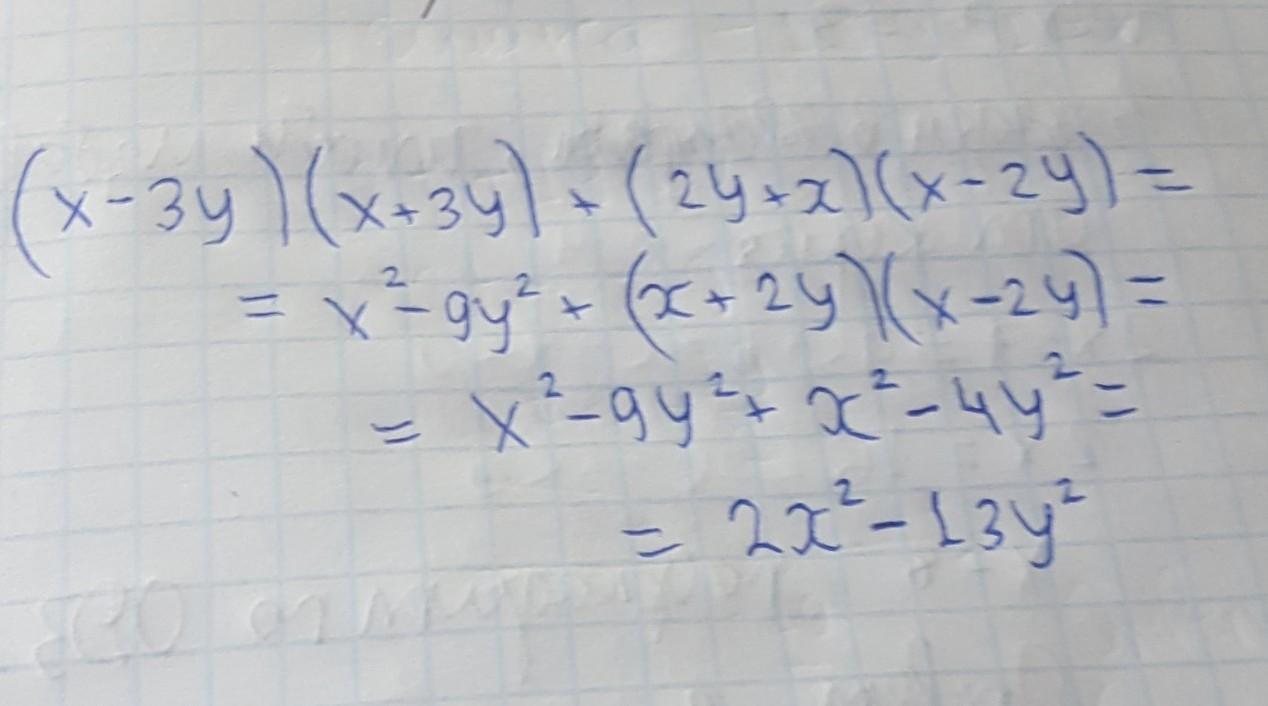 (x-3y)(x+3y)+(2y+x)(x-2y)=
=x²-9y²+(x+2y)(x-2y)=
=x²-9y²+x²-4y²=
=2x²-13y²